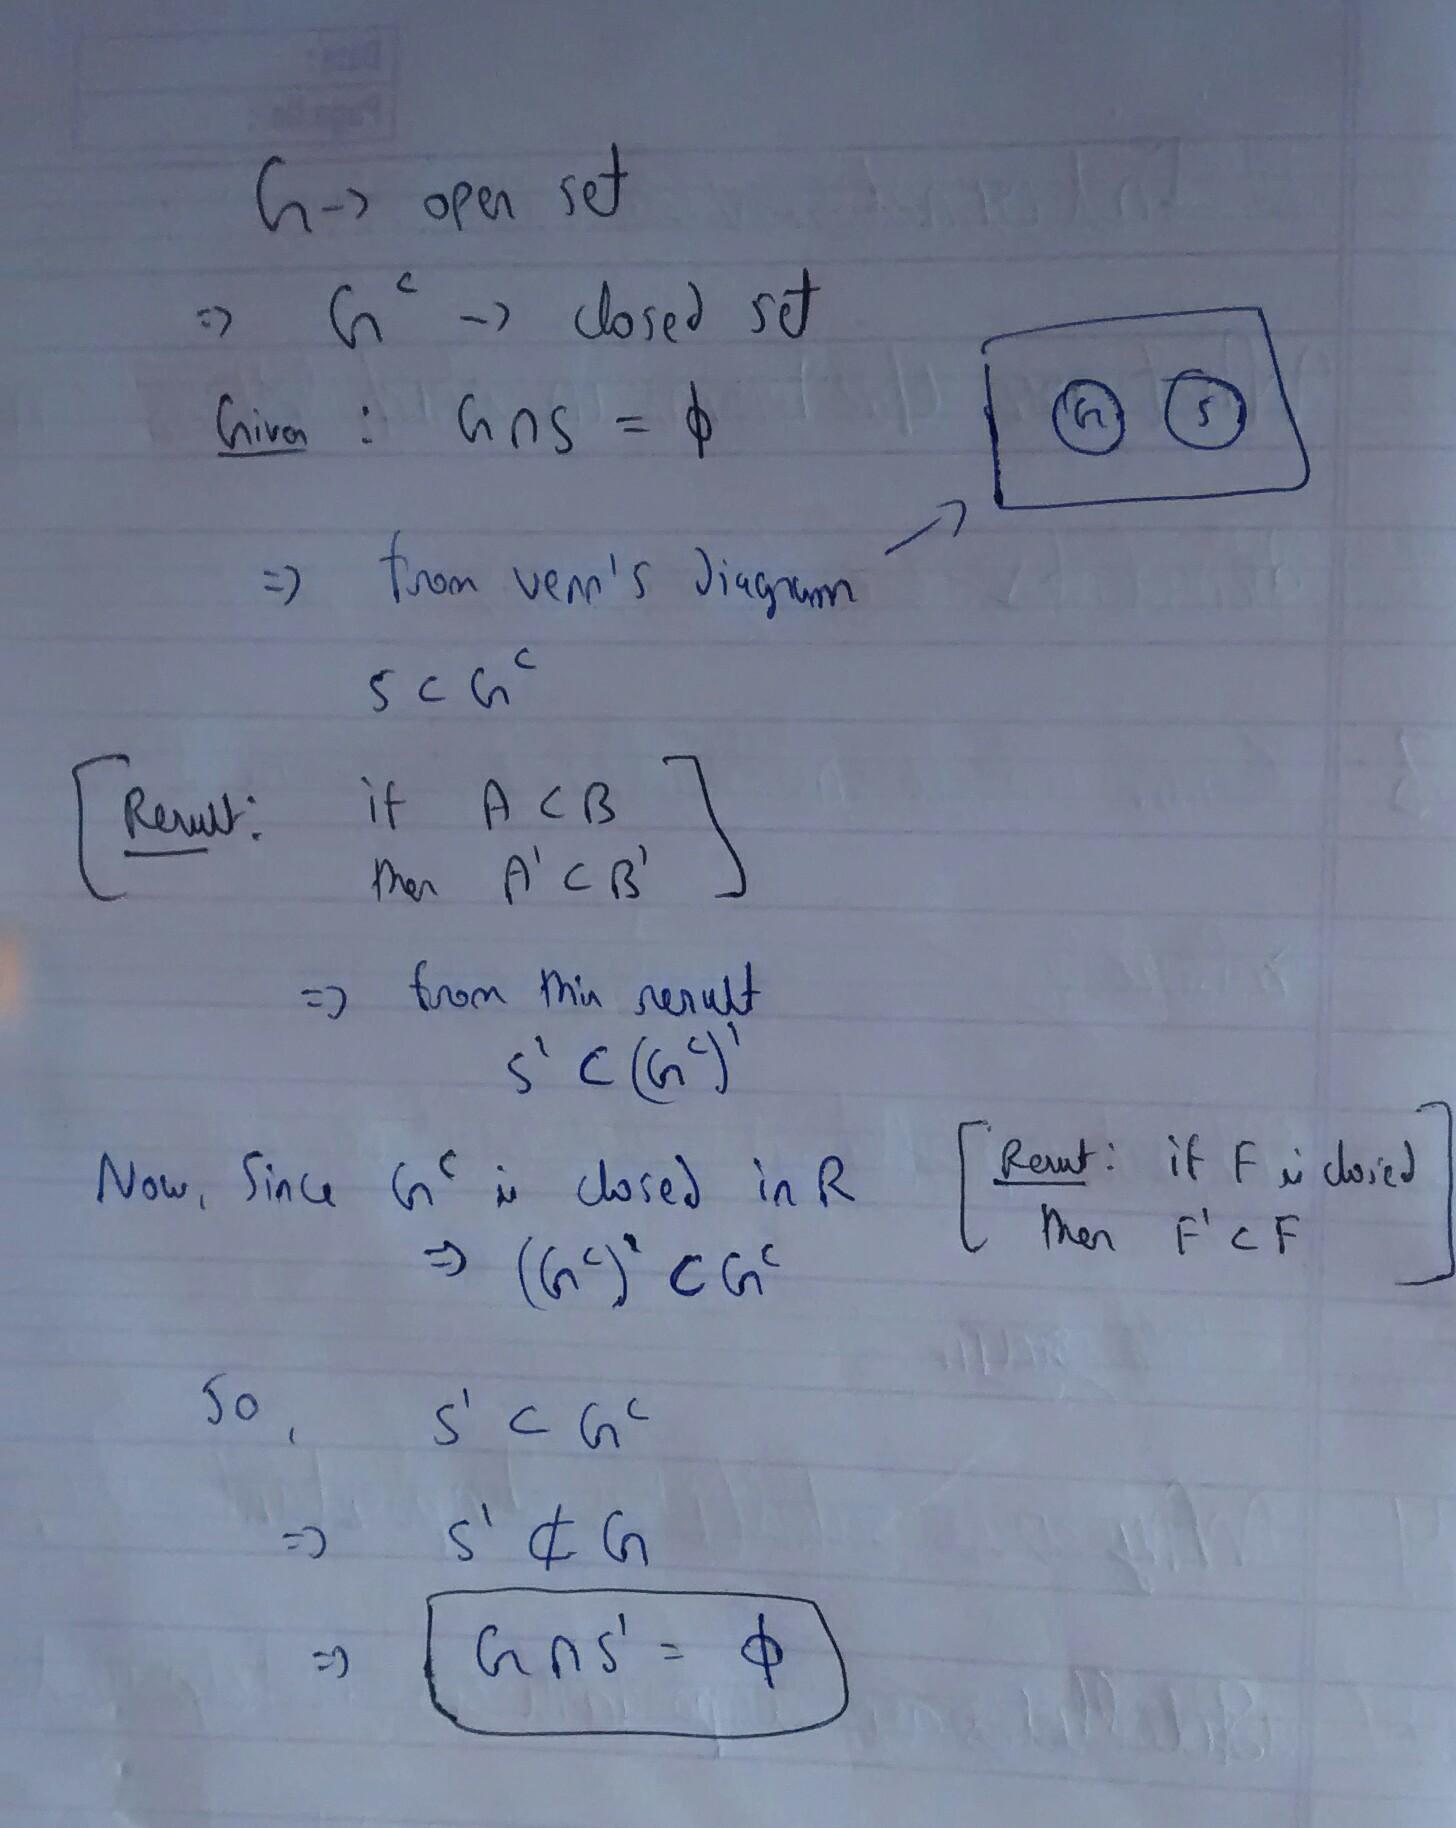 G -> open set
=> G^c -> closed set
Given : G ∩ S = ϕ
G S
=> from venn's diagram
S ⊂ G^c
[Result: if A ⊂ B
then A' ⊂ B']
=> from this result
S' ⊂ (G^c)'
Now, Since G^c is closed in R
[Result: if F is closed
then F' ⊂ F]
=> (G^c)' ⊂ G^c
So, S' ⊂ G^c
=> S' ⊄ G
=> G ∩ S' = ϕ